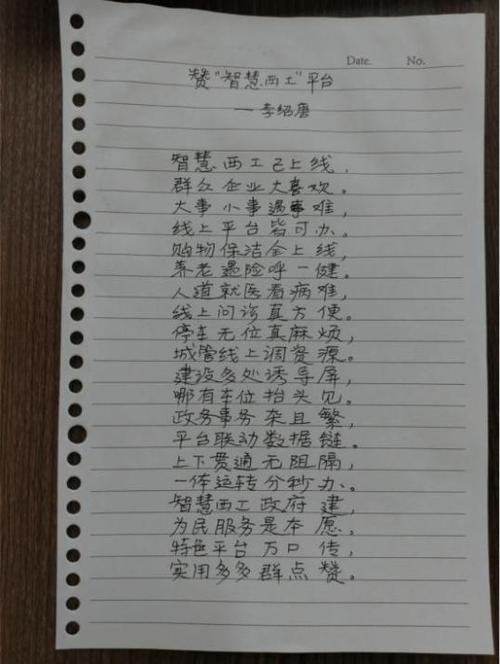 Date. No.
赞“智慧西工”平台
—李绍唐
智慧西工已上线,
群众企业大喜欢。
大事小事遇事难,
线上平台皆可办。
购物保洁全上线,
养老遇险呼一健。
人道就医看病难,
线上问诊真方便。
停车无位真麻烦,
城管线上调资源。
建设多处诱导屏,
哪有车位抬头见。
政务事务杂且繁,
平台联动数据链。
上下贯通无阻隔,
一体运转分秒办。
智慧西工政府建,
为民服务是本愿。
特色平台万口传,
实用多多群点赞。